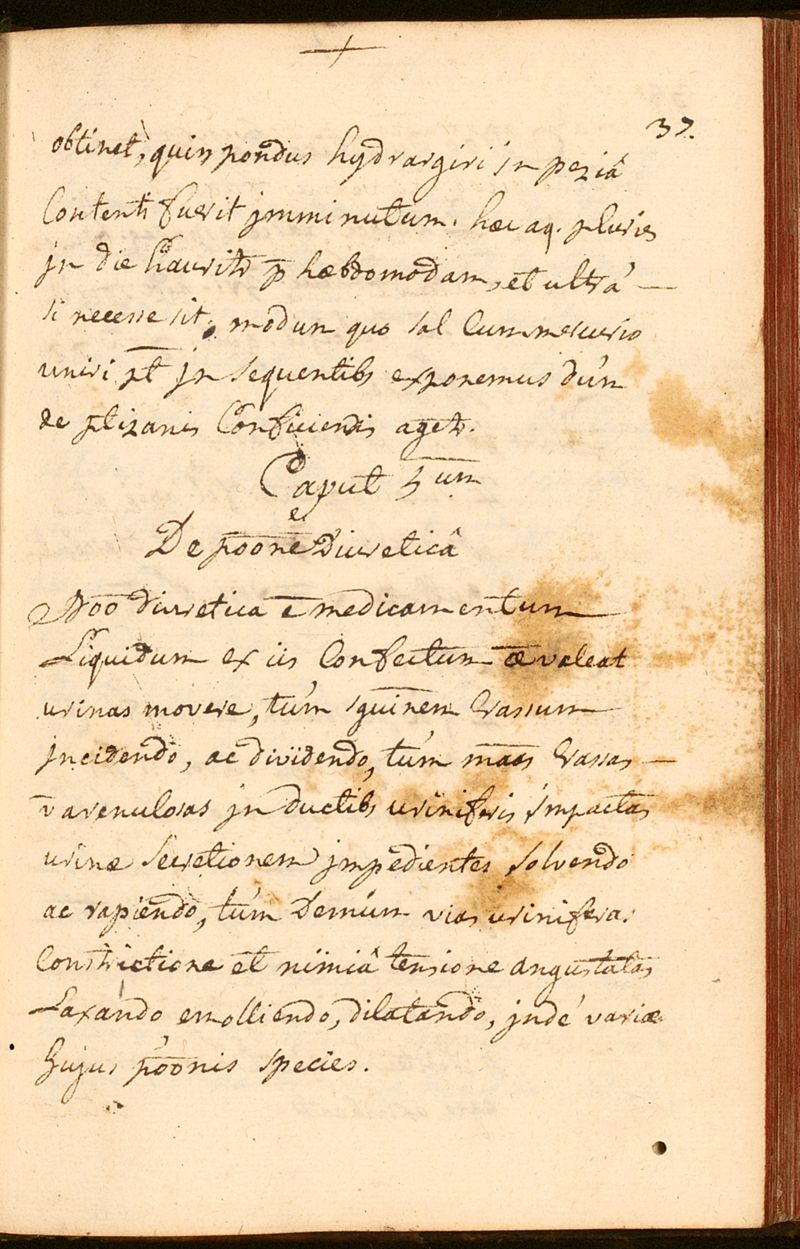 37.
obtinet, quin pondus hydrargiri in peziâ
Contenti fuerit jmminutum. hæc aq. pluries
jn die hauritr p̄ hæbdomodam, et ultrá —
si necesse sit, modun quo sal Cum mercurio
uniri pt̄ jn sequentibs exponemus dún
de ptizanis Conficiendis agetr.
Caput 5um
De poōne Diuretica
poō diuretica ē medicamentum
Liquidum ex iis Confectum valeat
urinas movere, túm sguinem Crassum
jncidendo, ac dividendo, túm māas Crassas —
v arenulosas jn ductibs uriniferis impactas
urinæ secretionem jmpedientes solvendo
ac rapiendo, túm Demúm vias uriniferas
Constrictione et nimiâ tensione angustatas
Laxando emolliendo, dilatando, jndé variæ
hujus poōnis species.